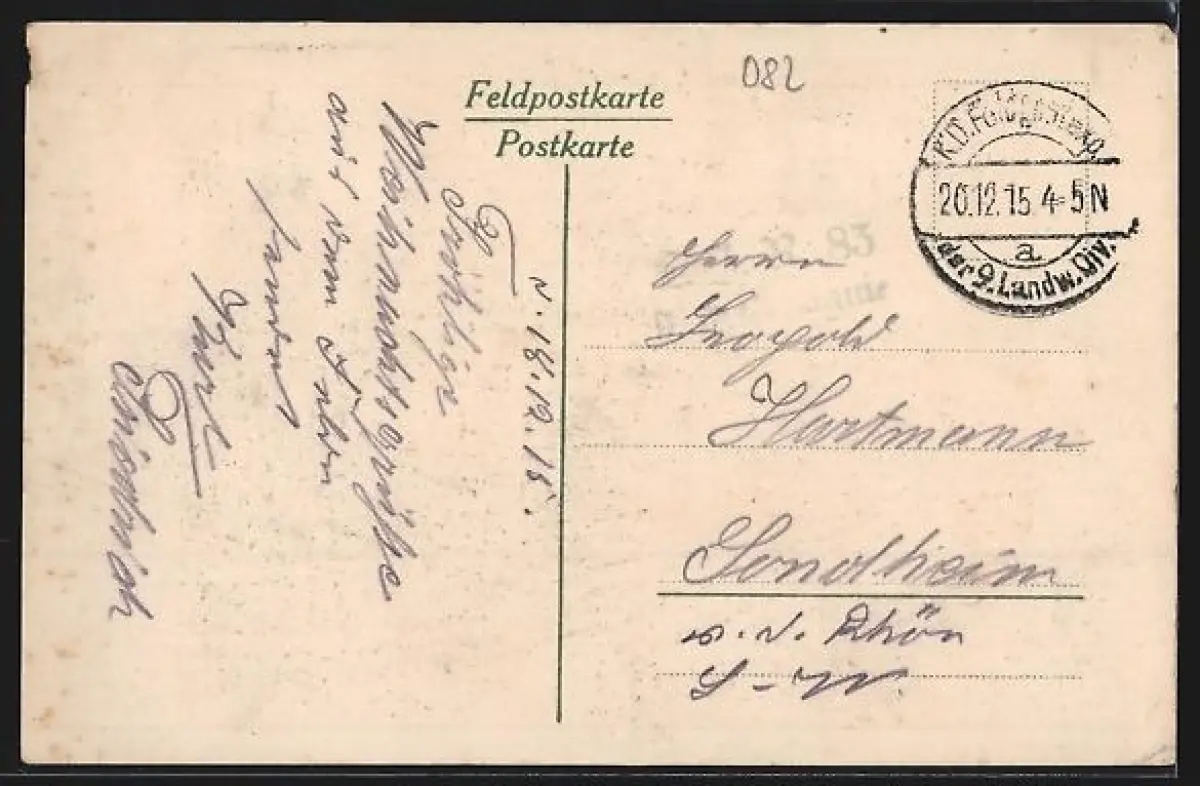 082
Feldpostkarte
Postkarte
K.D. Feldpostexp.
20.12.15 4-5N
a
der 9. Landw. Div.
83
Herrn
Leopold
Hartmann
Sondheim
v. d. Rhön
S-W.
d. 18.12.15.
Fröhliche
Weihnachtsgrüße
aus dem Felde
sendet
Kurt